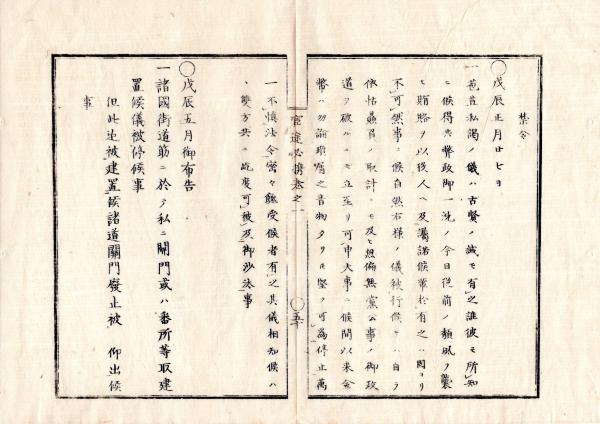 禁令
◯戊辰正月廿七日
一苞苴私謁ノ儀ハ古賢ノ誡モ有之誰彼モ所知
ニ候得共弊政御一洗ノ今日従前ノ頽風ヲ襲
ヒ賄賂ヲ以役人ヘ及嘱託候輩於有之ハ固ヨリ
不可然事ニ候自然右様ノ儀被行候テハ自ラ
依怙贔負ノ取計ニモ及ヒ無偏無黨公事ノ御政
道ヲ破ルニモ立至リ可申大事ニ候間以来金
幣ハ勿論瑣屑之音物タリトモ堅ク可為停止萬
官途必携巻之一
◯五十
一不慎法令窃々餽受候者有之其儀相知候ハ
、雙方共ニ屹度可被及御沙汰事
◯戊辰五月御布告
一諸國街道筋ニ於テ私ニ関門或ハ番所等取建
置候儀被停候事
但此迠被建置候諸道関門廢止被 仰出候
事